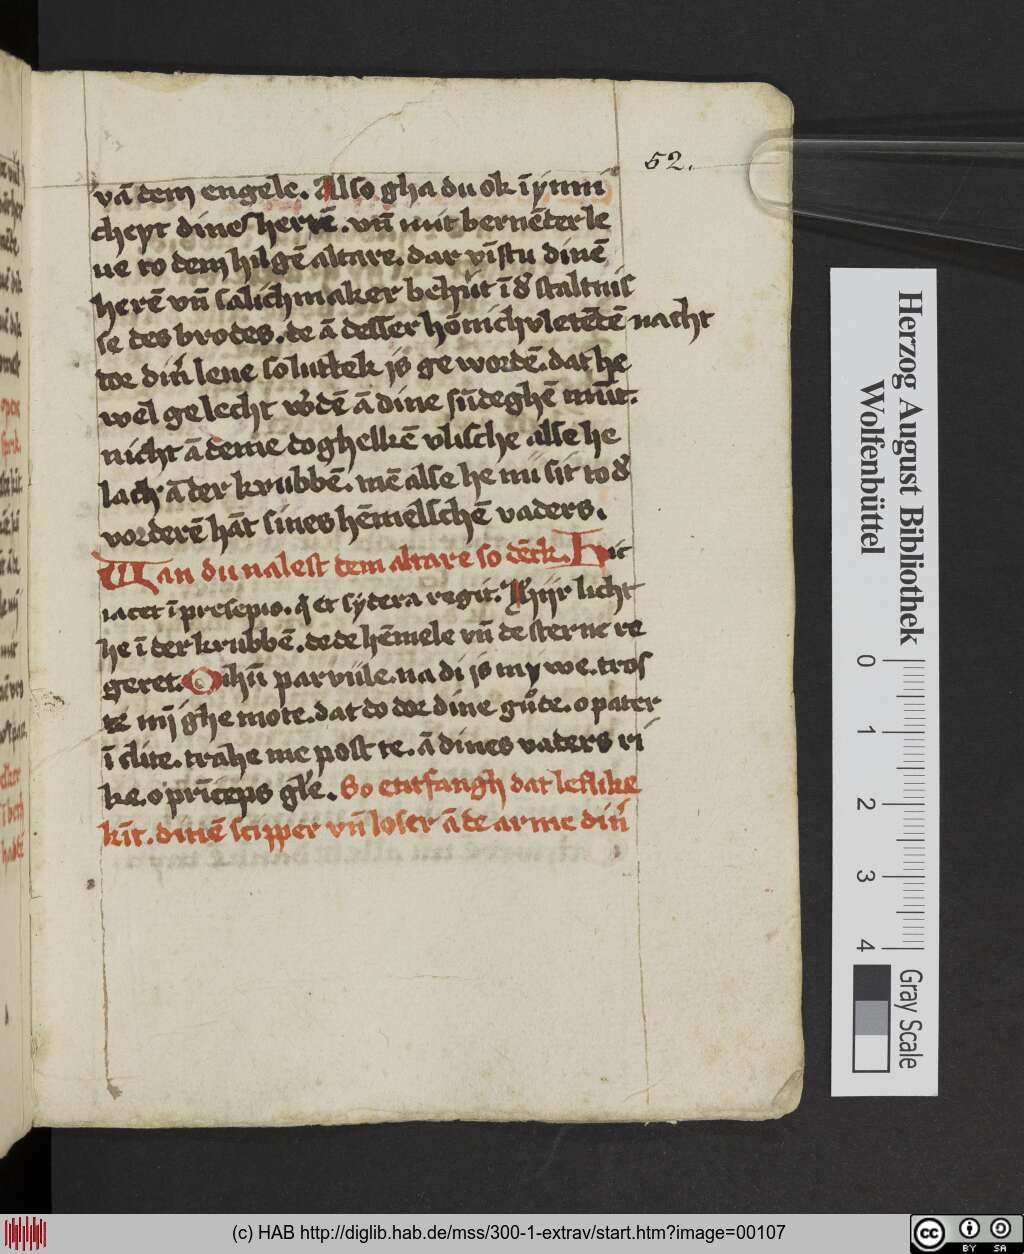 52.
vā dem engele. Also gha du ok ī ynni
cheyt dines hertē. vn̄ mit bernēder le
ue to dem hilgē altare. dar vīstu dinē
herē vn̄ salichmaker behut ī d' staltnis
se des brodes. de ā desser hōnichvletēdē nacht
dor din̄ leue so luttek is ge wordē. dat he
wel gelecht w'dē ā dine sūdeghē mūt.
nicht ā deme doghelkē vlische alse he
lach ā der krubbē. mē alse he nu sit to d'
vorderē hāt sines hēmelschē vaders.
Wan du nalest dem altare so dēck. Hic
iacet ī presepio. q' et sydera regit. Hijr licht
he ī der krubbē. de de hēmele vn̄ de sterne re
geret. O ihū parvule. na di is my we. tros
te mī ghemote. dat do dor dine gu̇de. o pater
ī clite. trahe me post te. ā dines vaders ri
ke. o prīceps gl'e. So entfangh dat leflike
kīt. dinē scipper vn̄ loser ā de arme din'
Herzog August Bibliothek
Wolfenbüttel
0 1 2 3 4
Gray Scale
(c) HAB http://diglib.hab.de/mss/300-1-extrav/start.htm?image=00107
cc BY SA